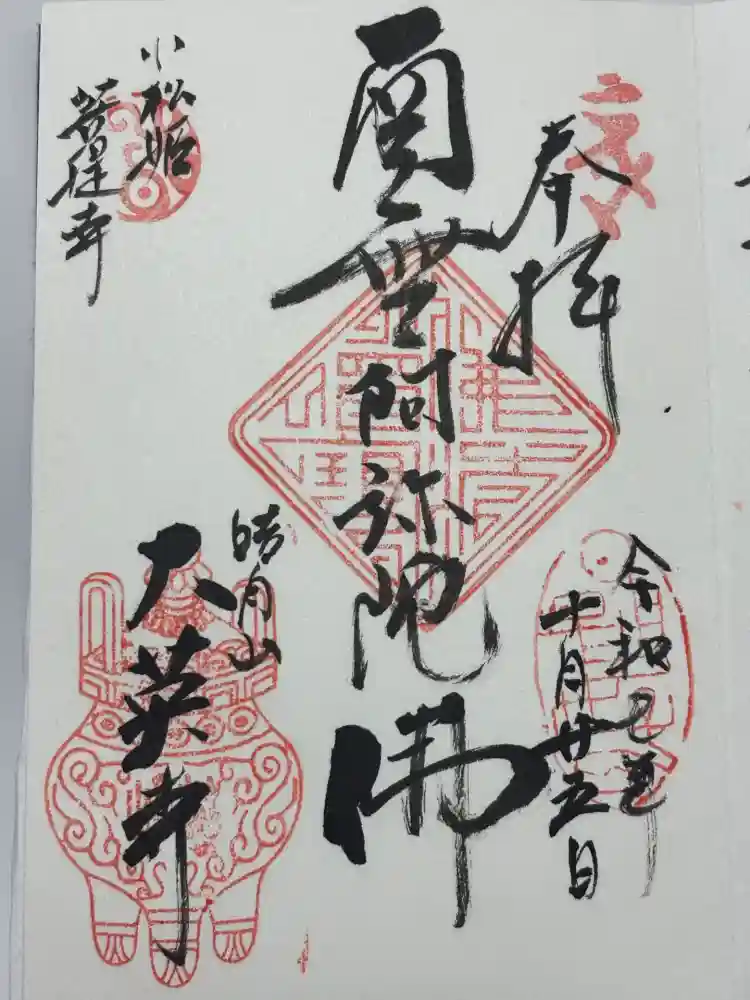 奉拝
令和己亥
十月廿五日
南無阿弥陀佛
皓月山
大英寺
小松姫
菩提寺